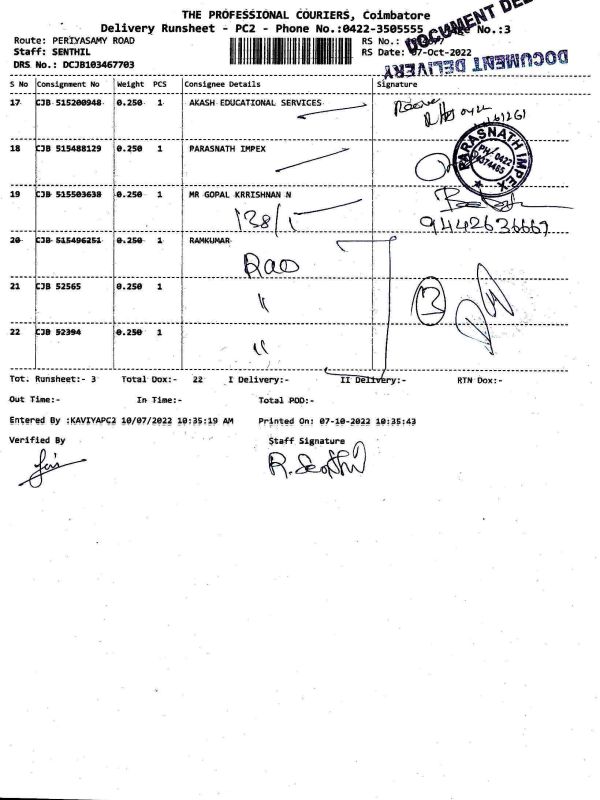 THE PROFESSIONAL COURIERS, Coimbatore
Delivery Runsheet - PC2 - Phone No.:0422-3505555 No.:3
Route: PERIYASAMY ROAD RS No.:
Staff: SENTHIL RS Date: 07-Oct-2022
DRS No.: DCJB103467703
DOCUMENT DEL
DOCUMENT DELIVERY
S No Consignment No Weight PCS Consignee Details Signature
17 CJB 515200948 0.250 1 AKASH EDUCATIONAL SERVICES
18 CJB 515488129 0.250 1 PARASNATH IMPEX
PARASNATH IMPEX
PH/ 0422
4374465
19 CJB 515503638 0.250 1 MR GOPAL KRRISHNAN N
138/1
9442636667
20 CJB 515496251 0.250 1 RAMKUMAR
Rao
21 CJB 52565 0.250 1
"
3
22 CJB 52394 0.250 1
"
Tot. Runsheet:- 3 Total Dox:- 22 I Delivery:- II Delivery:- RTN Dox:-
Out Time:- In Time:- Total POD:-
Entered By :KAVIYAPC2 10/07/2022 10:35:19 AM Printed On: 07-10-2022 10:35:43
Verified By Staff Signature
R. Senthil